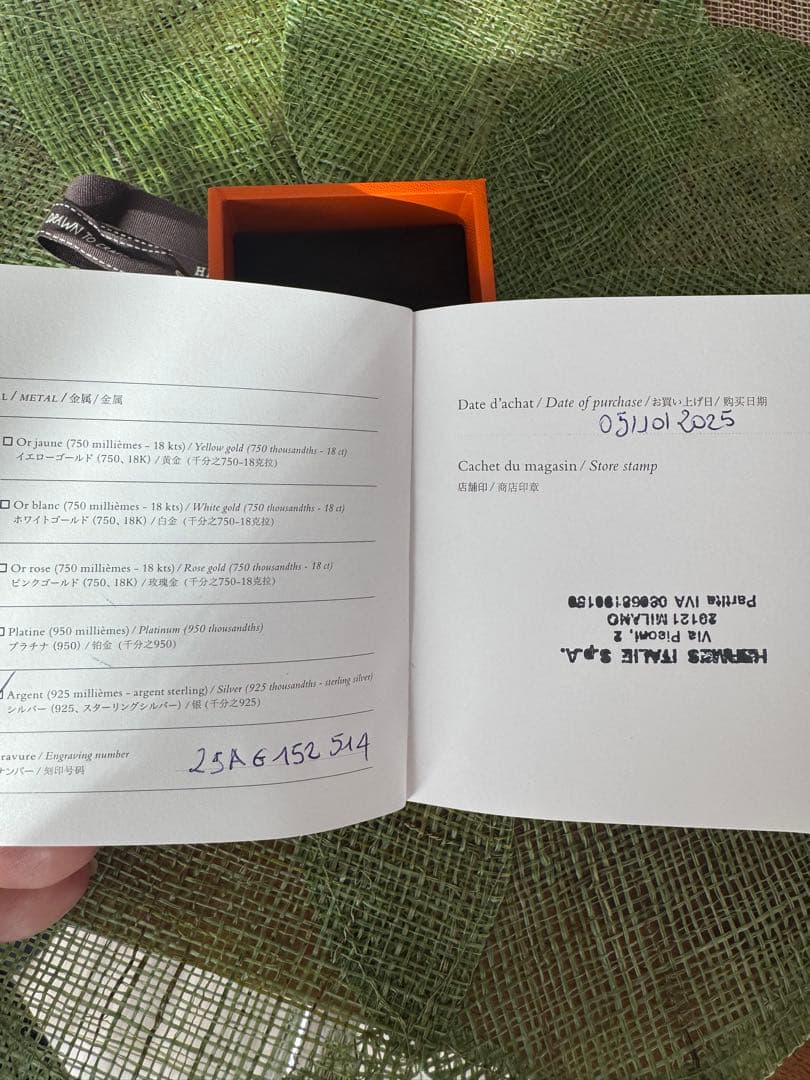 DRAWN TO
L / METAL / 金属 / 金属
Or jaune (750 millièmes - 18 kts) / Yellow gold (750 thousandths - 18 ct)
イエローゴールド (750、18K) / 黄金 (千分之750-18克拉)
Or blanc (750 millièmes - 18 kts) / White gold (750 thousandths - 18 ct)
ホワイトゴールド (750、18K) / 白金 (千分之750-18克拉)
Or rose (750 millièmes - 18 kts) / Rose gold (750 thousandths - 18 ct)
ピンクゴールド (750、18K) / 玫瑰金 (千分之750-18克拉)
Platine (950 millièmes) / Platinum (950 thousandths)
プラチナ (950) / 铂金 (千分之950)
Argent (925 millièmes - argent sterling) / Silver (925 thousandths - sterling silver)
シルバー (925、スターリングシルバー) / 银 (千分之925)
ravure / Engraving number
ナンバー / 刻印号码
25AG152514
Date d'achat / Date of purchase / お買い上げ日 / 购买日期
05/10/2025
Cachet du magasin / Store stamp
店舗印 / 商店印章
HERMES ITALIE S.p.A.
Via Pisoni, 2
20121 MILANO
Partita IVA